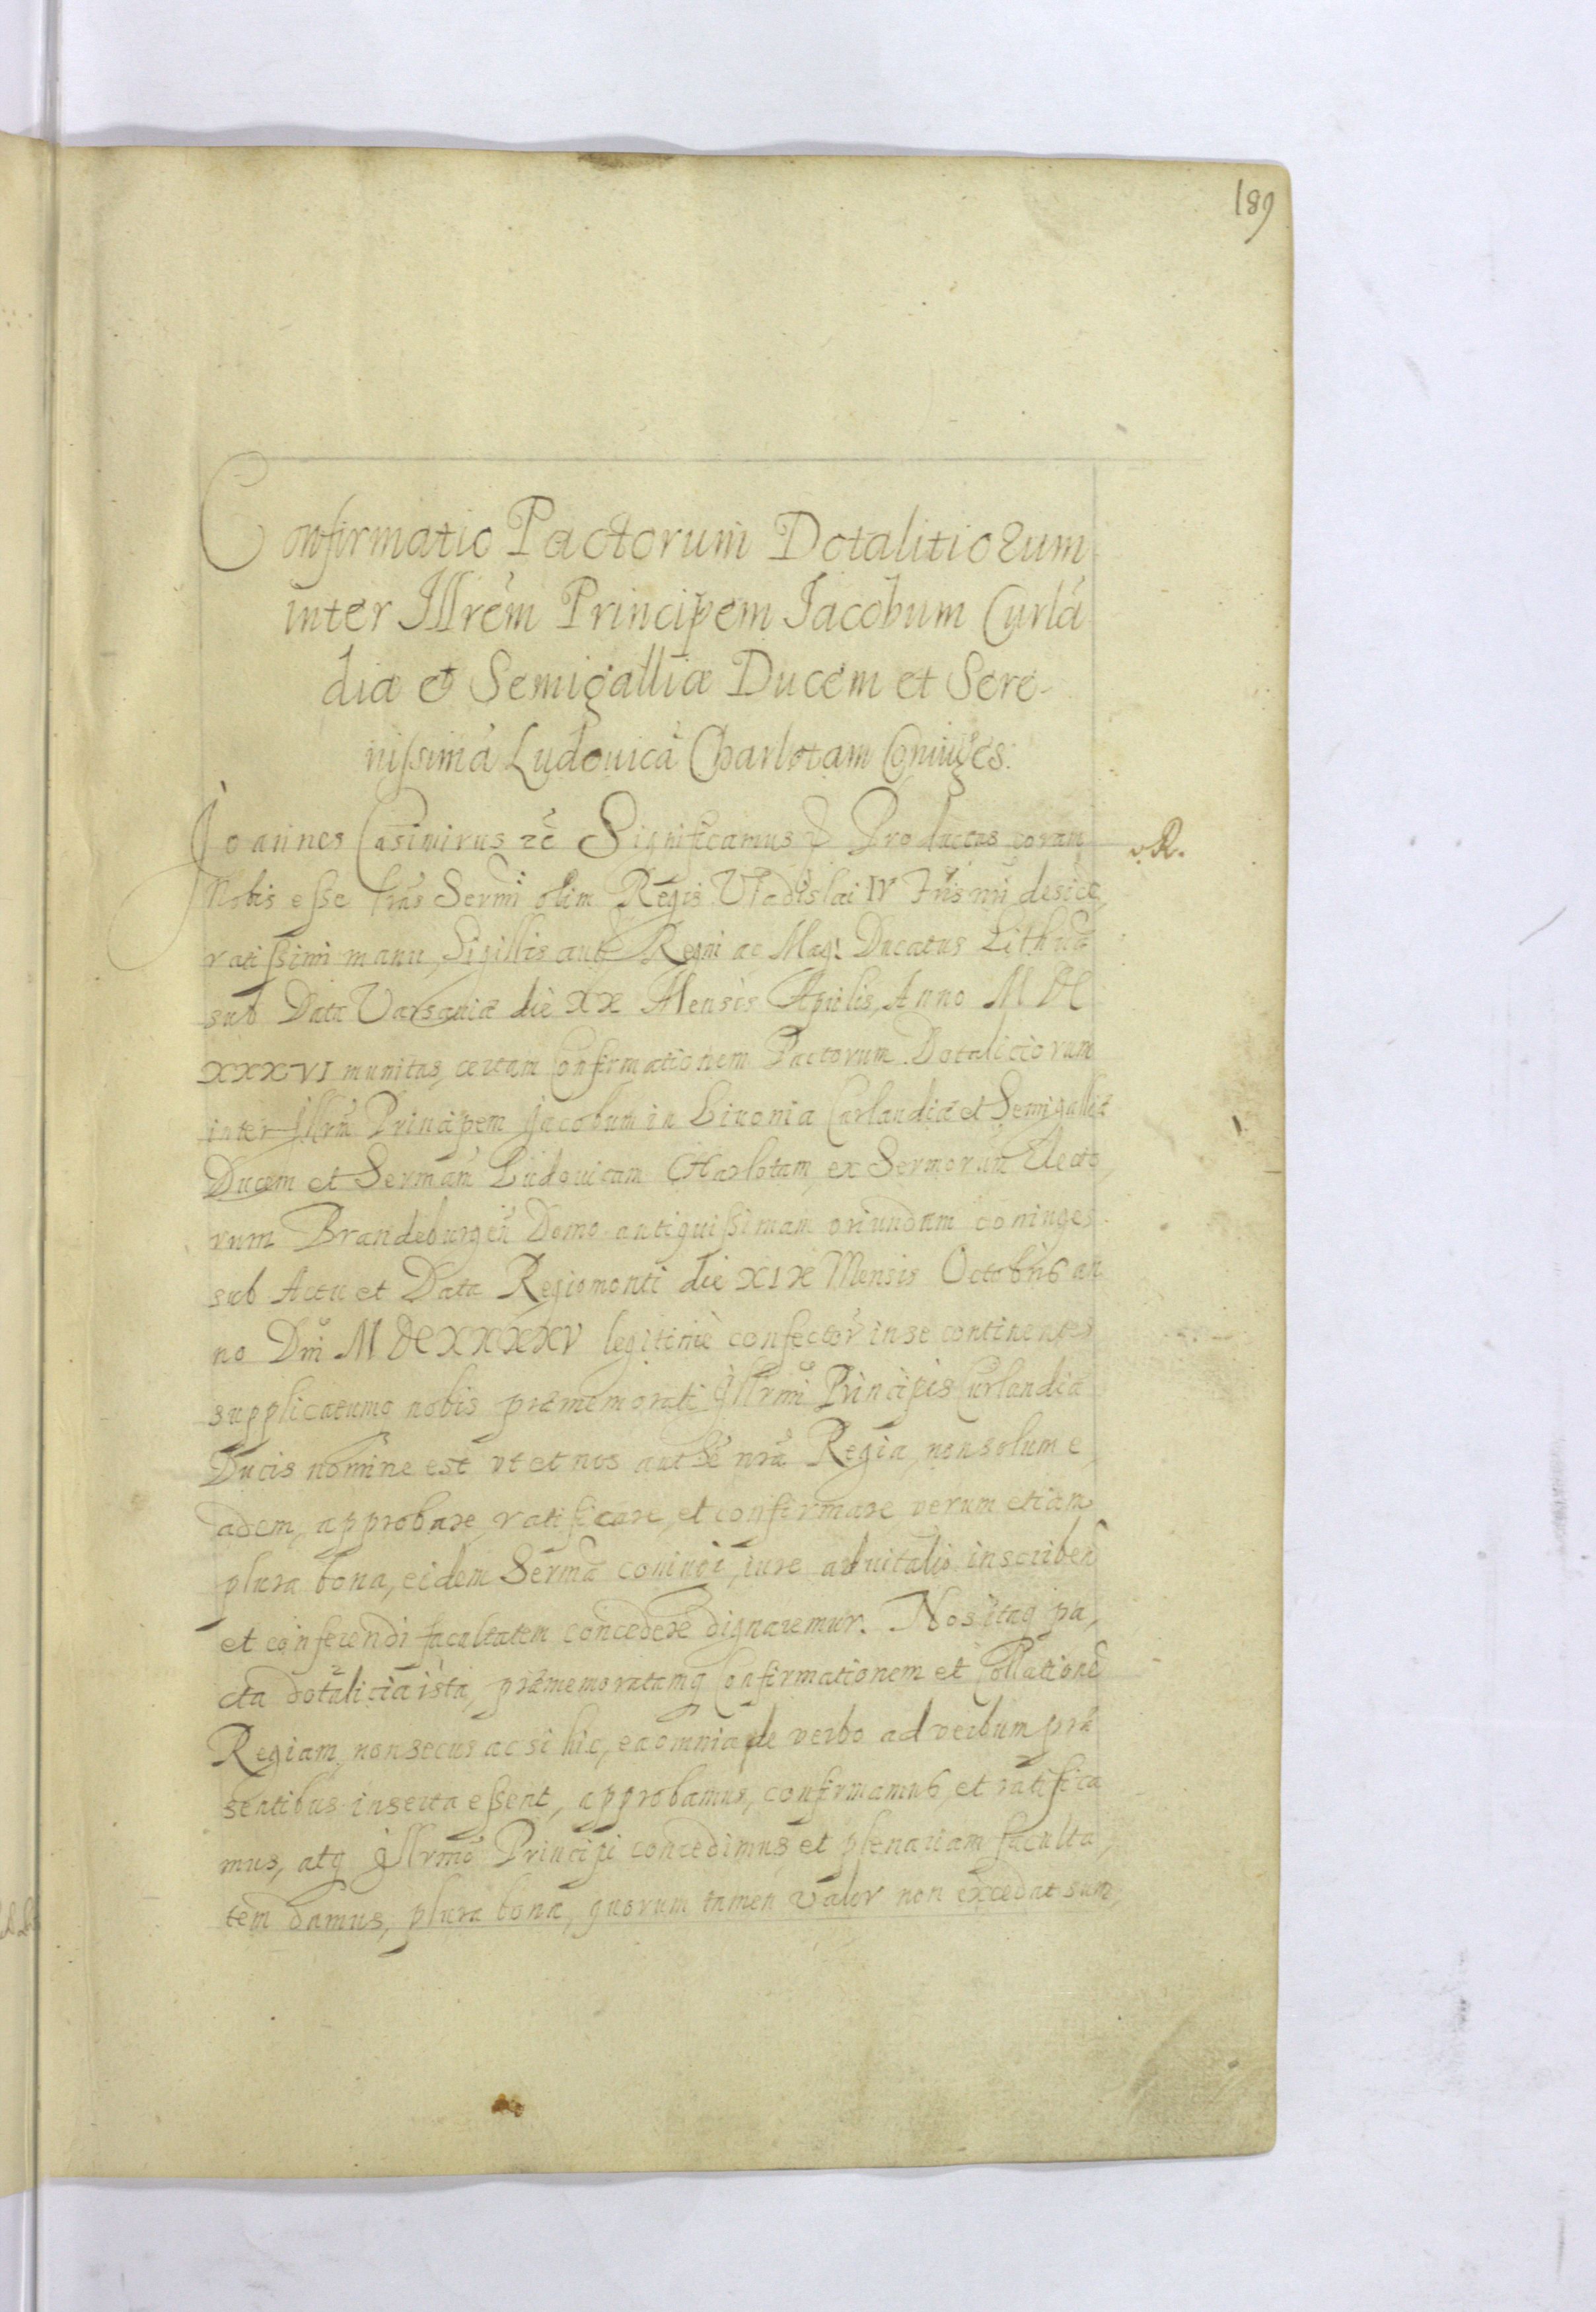 189
Confirmatio Pactorum Dotalitiorum
inter Jllrem Principem Jacobum Curlã
diæ et Semigalliæ Ducem et Sere-
nissimã Ludouicã Charlotam Coniuges:
Joannes Casimirus &c Significamus Productas coram
R.
Nobis esse lras Sermi olim Regis Vladislai IV Fris nri deside,
ratissimi manu, Sigillis autẽ Regni ac Mag: Ducatus Lithuã
sub Data Varsauiæ die XX Mensis Aprilis, Anno M DC
XXXXVI munitas, certam Confirmationem Pactorum Dotalitiorum
inter Jllrm Principem Jacobum in Liuonia Curlandiæ et Semigalliæ
Ducem et Sermam Ludouicam Charlotam, ex Sermorum Electo,
rum Brandeburgeñ Domo antiquissimam oriundam coniuges
sub Actu et Data Regiomonti die XIX Mensis Octobris an
no Dni M DCXXXXV legitime confector in se continentes
supplicatumq nobis præmemorati Jllrmi Principis Curlandiæ
Ducis nomine est vt et nos authẽ nrã Regia, non solum e,
adem, approbare, ratificare, et confirmare verum etiam
plura bona, eidem Sermæ coniugi, iure aduitalio inscribeñ
et conferendi facultatem concedere dignaremur. Nos itaq pa,
cta dotalicia ista, præmemoratamq Confirmationem et Collationẽ
Regiam, non secus ac si hic, ea omnia de verbo ad verbum præ
sentibus inserta essent, approbamus, confirmamus, et ratifica
mus, atq Jllrmo Principi concedimus et plenariam faculta,
tem damus, plura bona, quorum tamen valor non excedat sum,